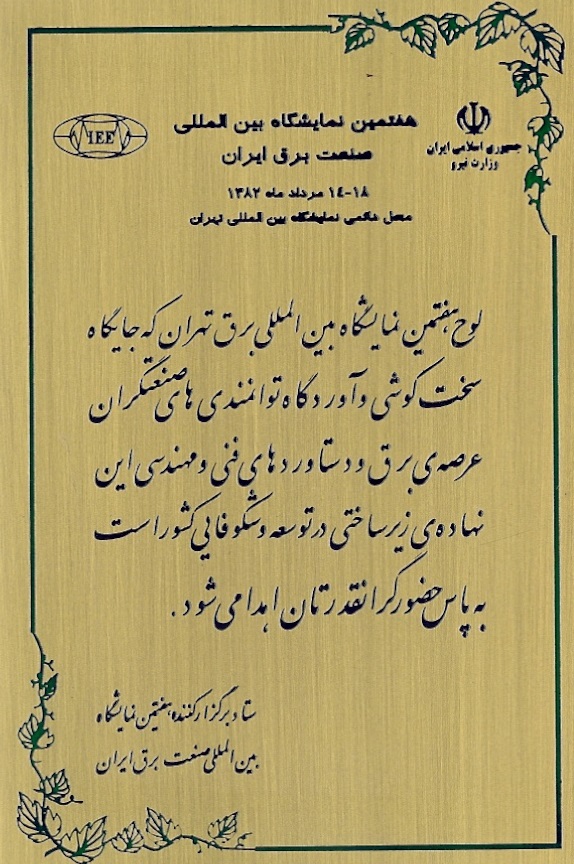 IEE
هفتمین نمایشگاه بین المللی
صنعت برق ایران
جمهوری اسلامی ایران
وزارت نیرو
۱۴-۱۸ مرداد ماه ۱۳۸۲
محل دائمی نمایشگاه بین المللی تهران
لوح هفتمین نمایشگاه بین المللی برق تهران که جایگاه
سخت کوشی و آوردگاه توانمندی های صنعتگران
عرصه ی برق و دستاوردهای فنی و مهندسی این
نهاده ی زیرساختی در توسعه و شکوفایی کشور است
به پاس حضور گرانقدرتان اهدا می شود.
ستاد برگزارکننده هفتمین نمایشگاه
بین المللی صنعت برق ایران